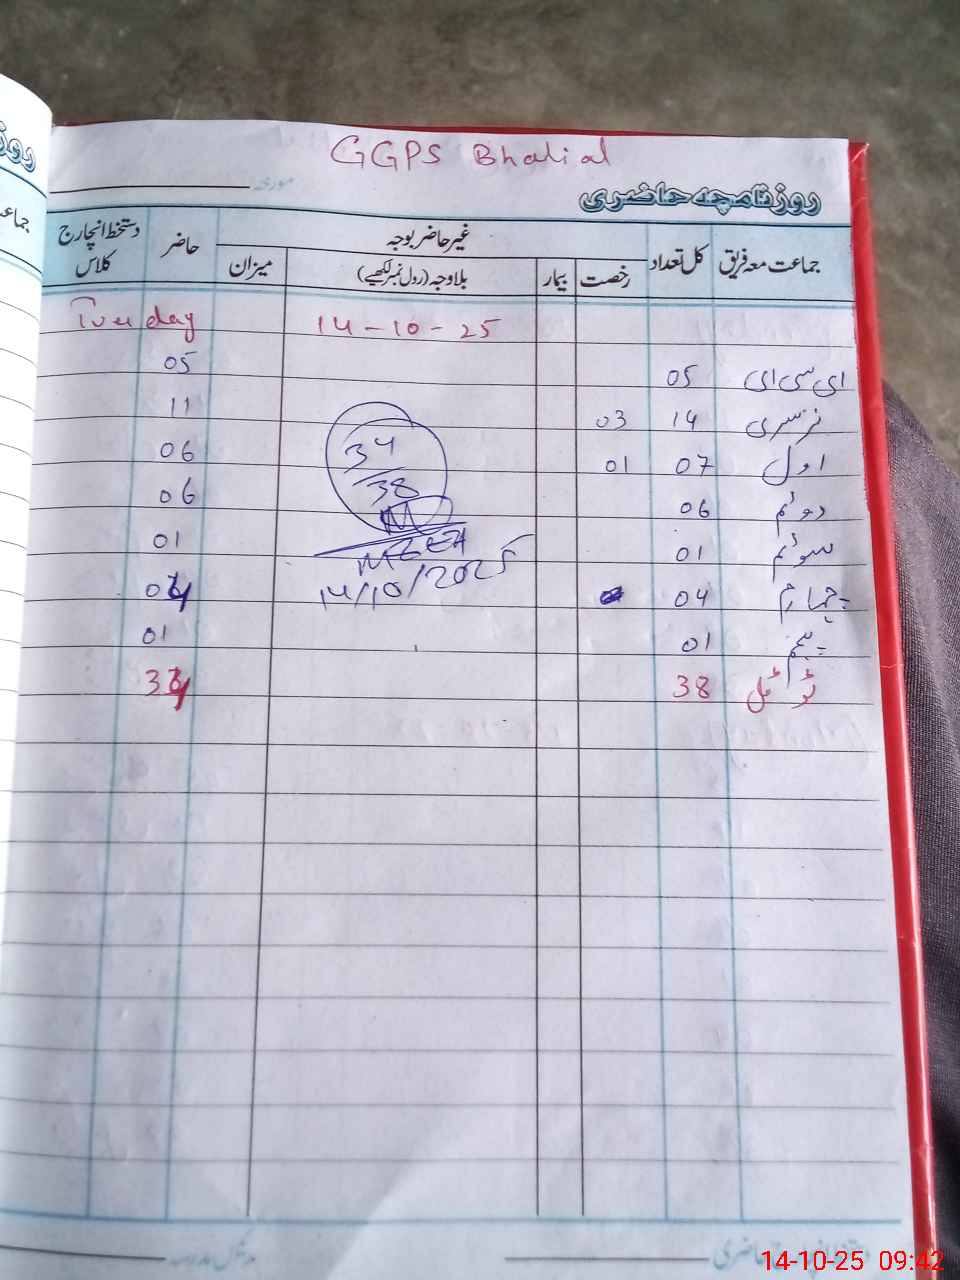 GGPS Bhalial
روزنامچہ حاضری
مورخہ
جماعت معہ فریق کل تعداد غیر حاضر بوجہ حاضر دستخط انچارج کلاس
رخصت بیمار بلاوجہ (رول نمبر لکھیے) میزان
Tuesday 14-10-25
ای سی ای 05 05
نرسری 14 03 11
اول 07 01 06
دوئم 06 06
سوئم 01 01
چہارم 04 04
پنجم 01 01
ٹوٹل 38 34
34
38
MEEA
14/10/2025
حاضری
14-10-25 09:42